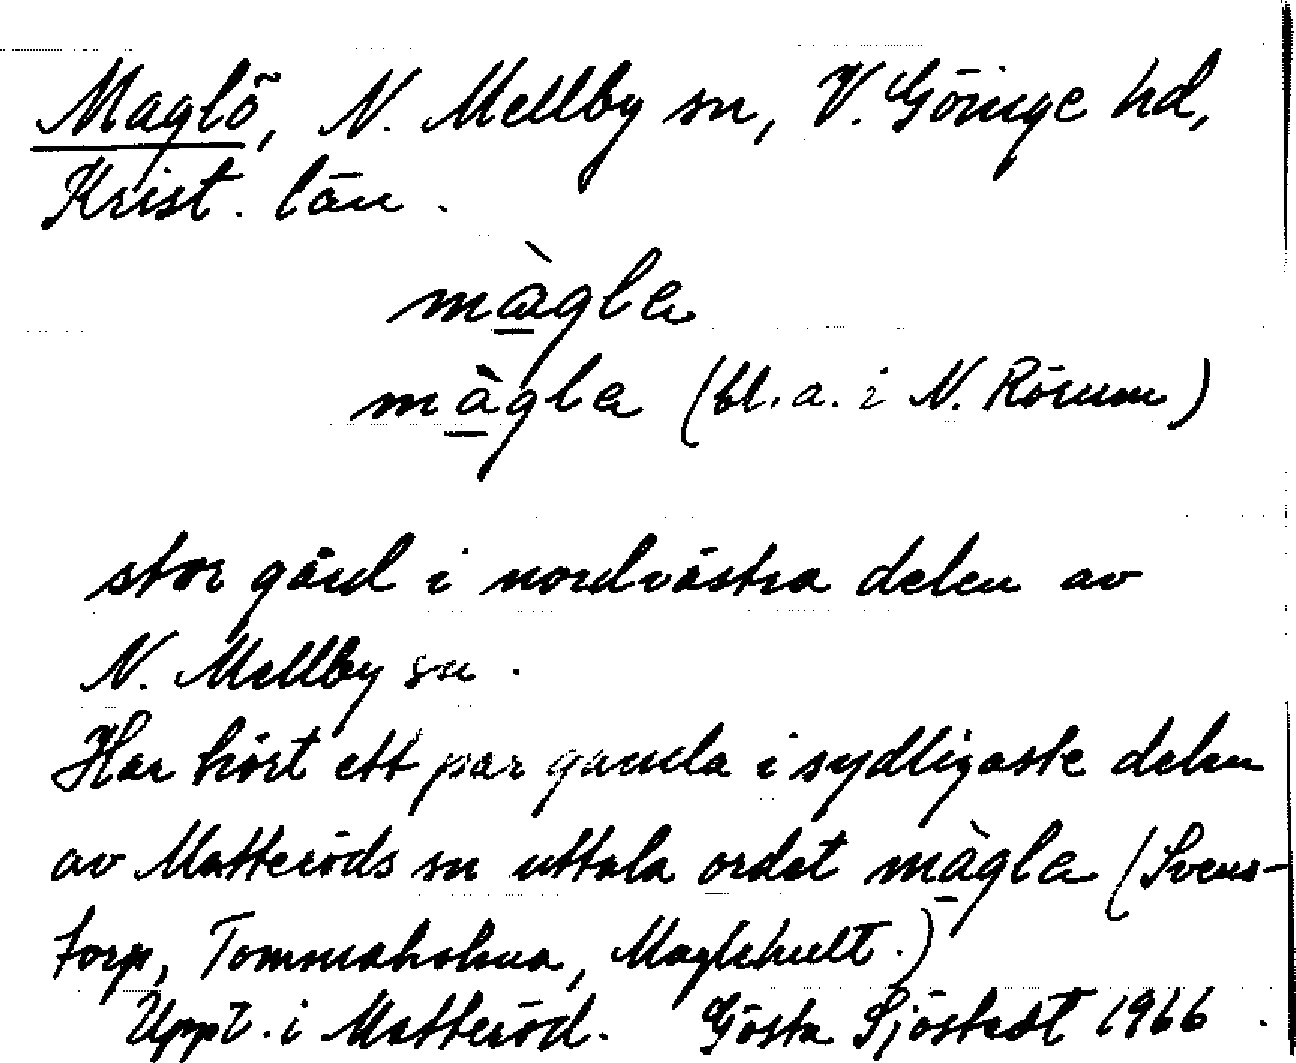 Maglö, N. Mellby sn, V. Göinge hd,
Krist. län.
màgla
màgla (bl.a. i N. Rörum)
stor gård i nordvästra delen av
N. Mellby sn.
Har hört ett par gamla i sydligaste delen
av Matteröds sn uttala ordet màgla (Svens-
torp, Tommaholma, Maglehult.)
Uppt. i Matteröd. Gösta Sjöstedt 1966.